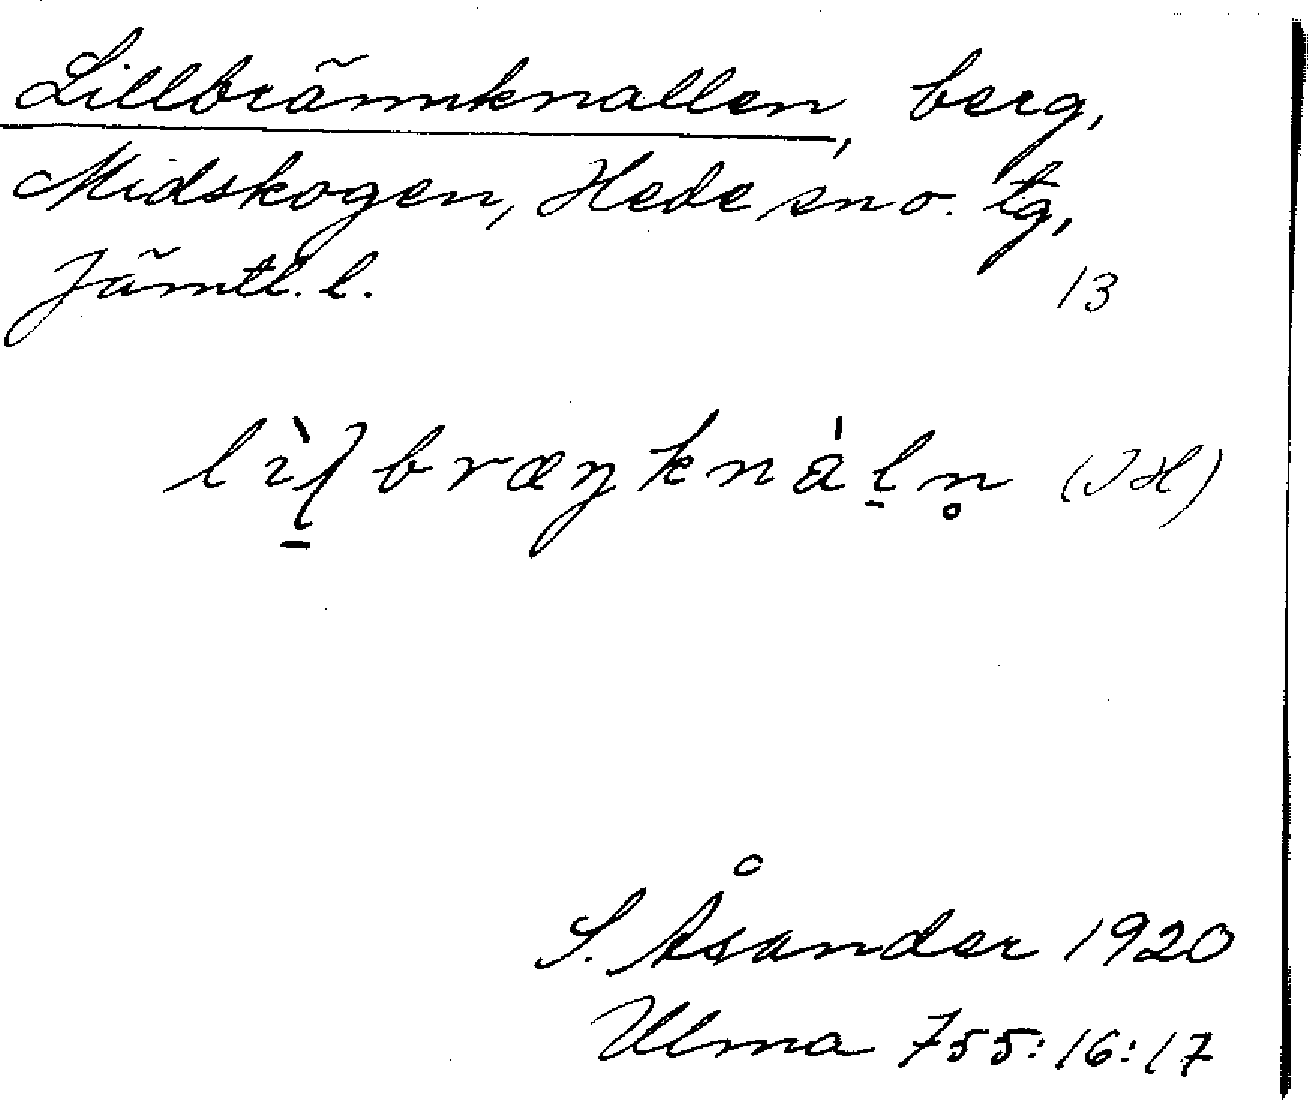 Lillbrännknallen, berg,
Midskogen, Hede sn o. tg,
Jämtl. l.
13
lìḻbræŋknáḻn̥ (JH)
S. Åsander 1920
Ulma 755:16:17